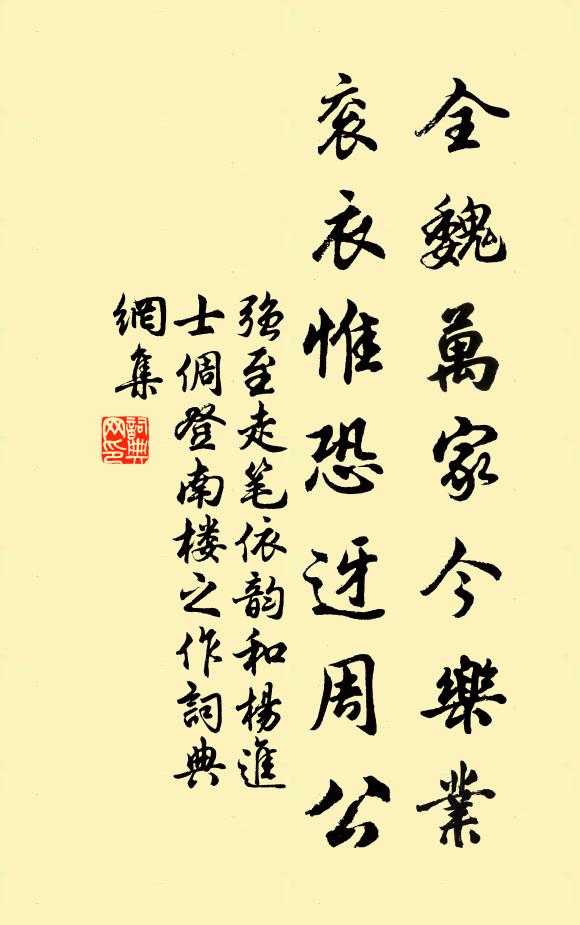 全魏萬家今樂業
衮衣惟恐迓周公
强至走笔依韵和楊進
士倜登南楼之作詞典
網集
詞典
网印